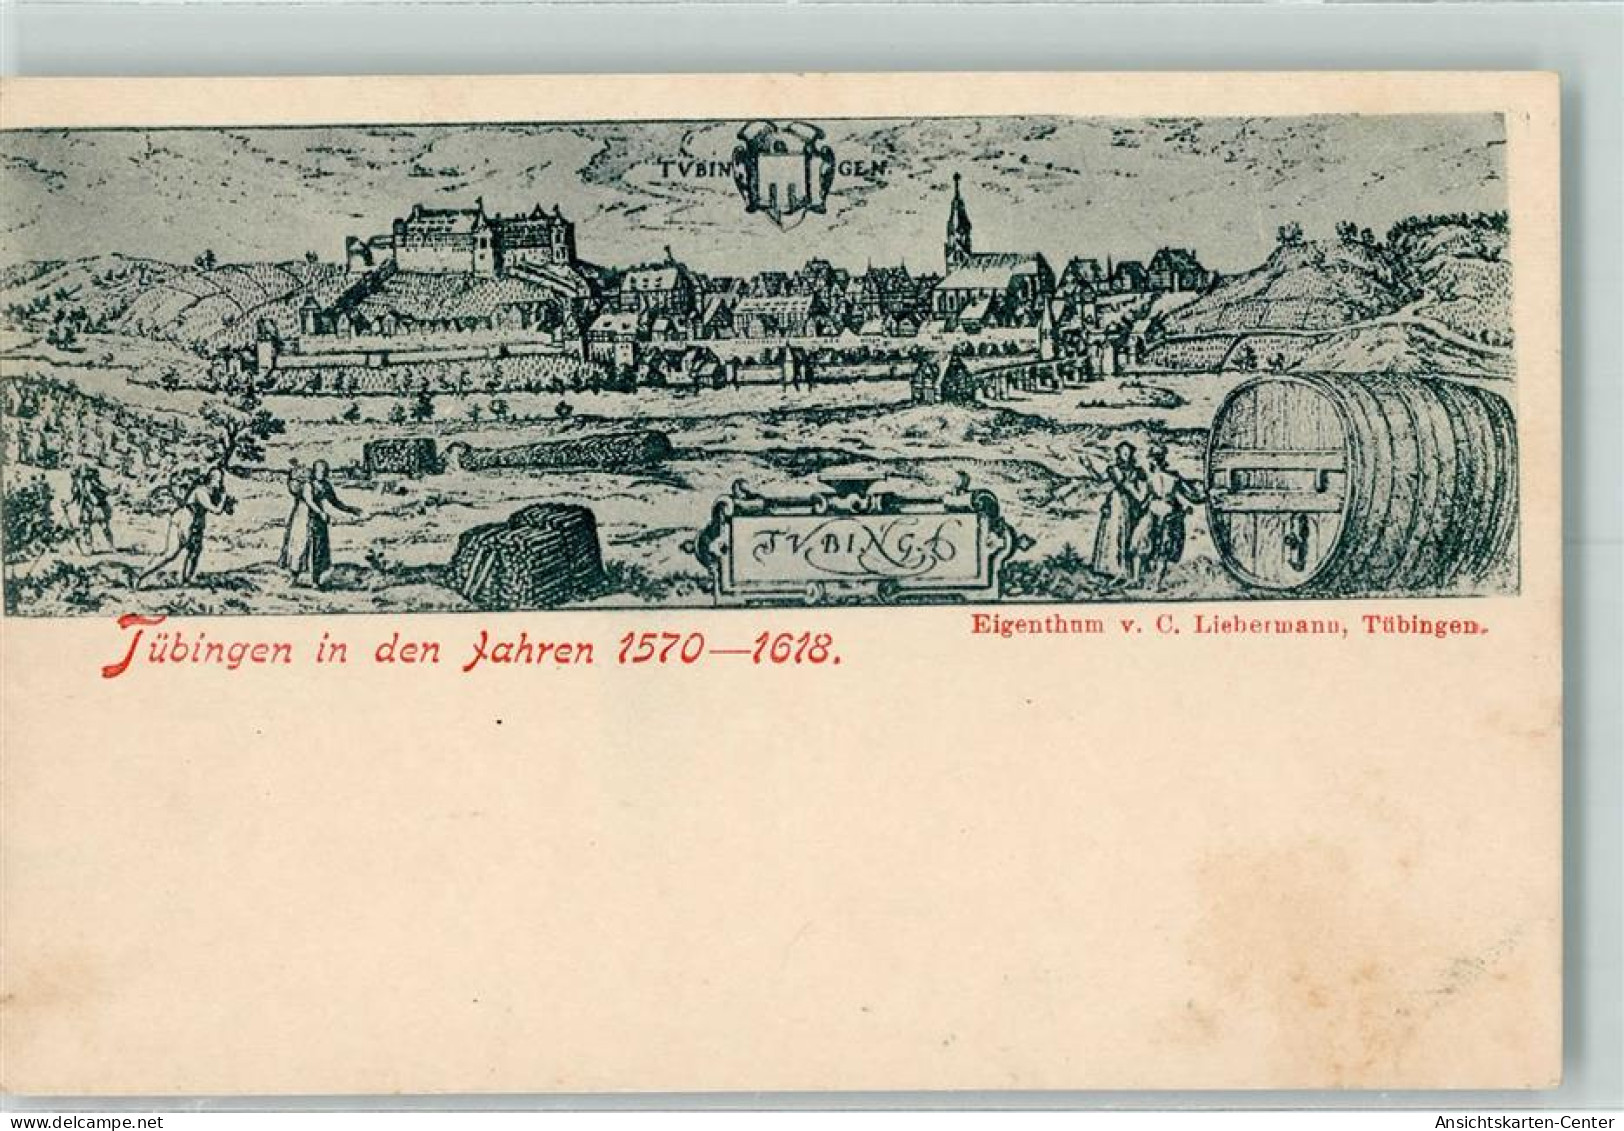 TVBIN GEN.
TVBINGA
Tübingen in den Jahren 1570—1618.
Eigenthum v. C. Liebermann, Tübingen.
Ansichtskarten-Center